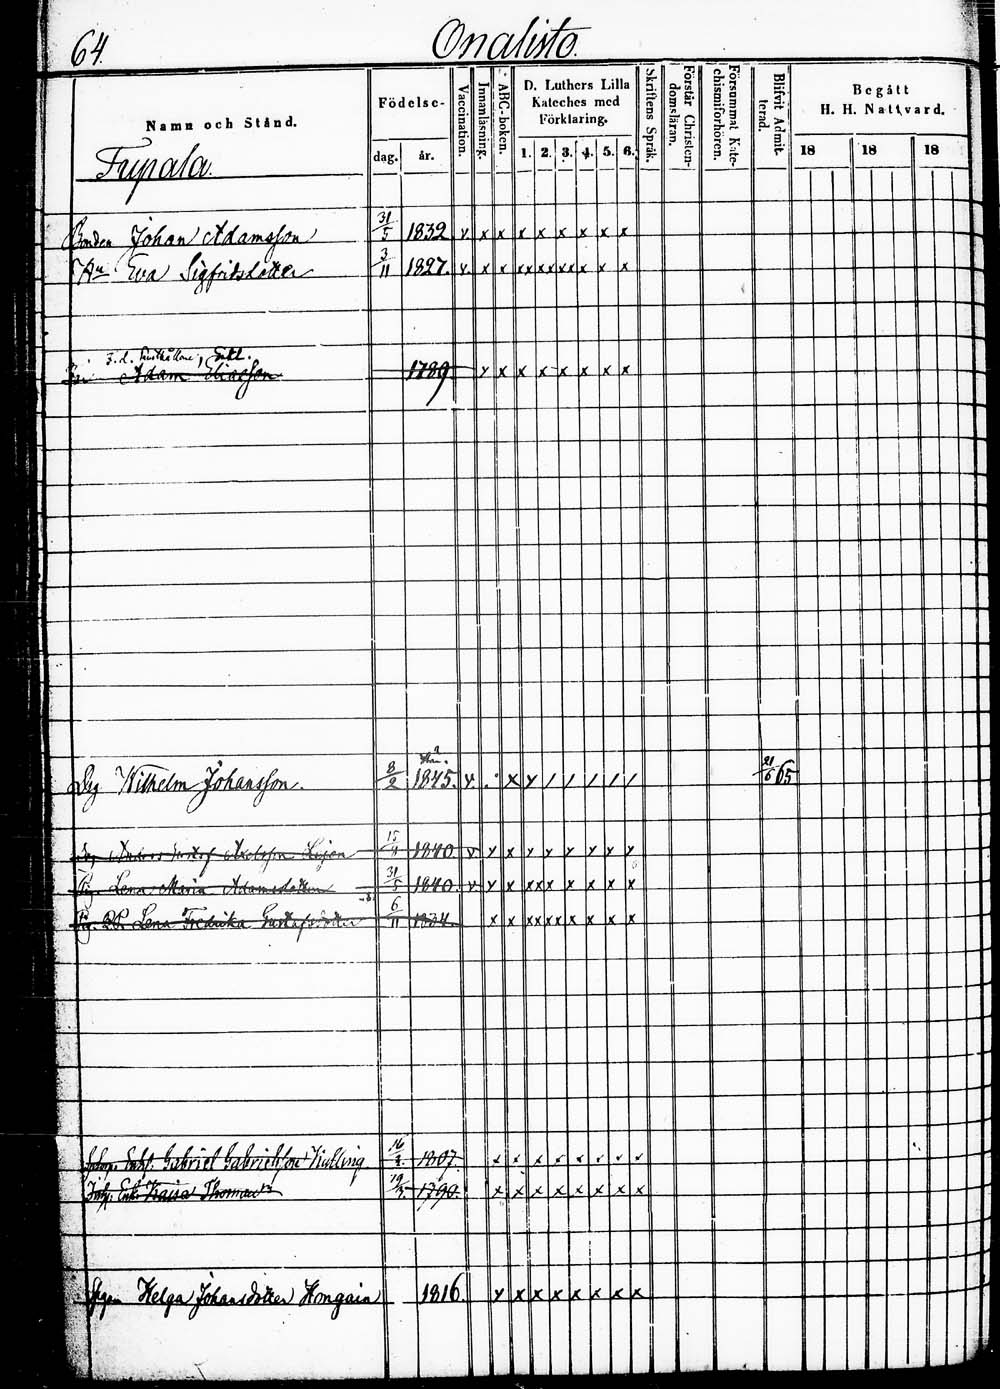 64.
Onalisto.
Namn och Stånd.
Födelse-
dag. år.
Vaccination.
Innanläsning.
ABC-boken.
D. Luthers Lilla
Kateches med
Förklaring.
1. 2. 3. 4. 5. 6.
Skriftens Språk.
Förstår Christen-
domsläran.
Försummat Kate-
chismiförhören.
Blifvit Admit-
terad.
Begått
H. H. Nattvard.
18 18 18
Tupala.
Bonden Johan Adamsson 31/5 1832 v. x x x x x x x x
Hu Eva Sigfridsdotter 3/11 1827. v. x x xx xx xxx x x x
Adam Eliasson 1789. y x x x x x x x
Drg Wilhelm Johansson. 8/2 1845. v. . x y / / / / / 21/6 65
Anders Gustaf 15/ 1840. v y x y y y y y y
Pig. Lena Maria Adamsdotter 31/5 1840. v y x xxx x x x x
Lena Fredrika Gustafsdotter 6/11 1834. x x xxxxx x x x x
Enkl. Gabriel Gabrielsson Kylling 16/ 1807. x x x x x x x x
Inh. Enk. Kaisa Thomasd. 19/ 1790. x x x x x x x x
Helga Johansdotter Hongain 1816. y x x x x x x x